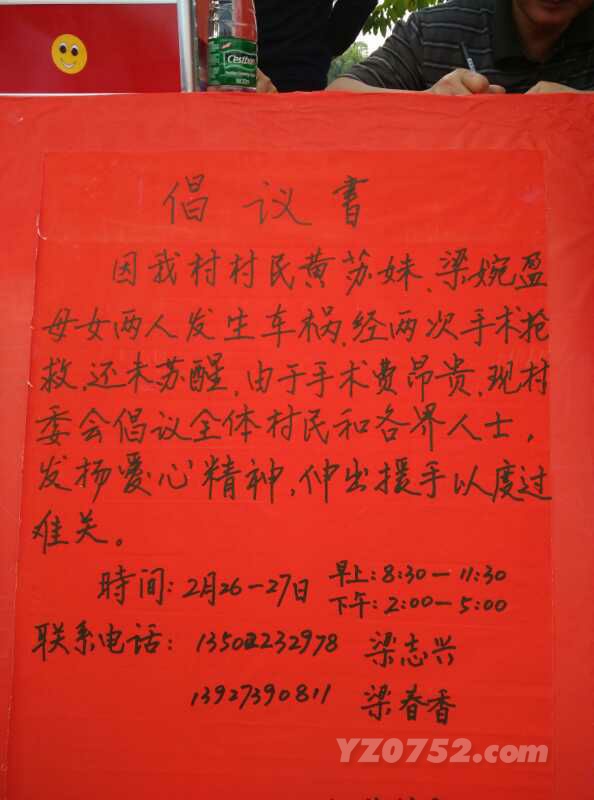 Cestbon
倡议书
因我村村民黄苏妹、梁婉盈
母女两人发生车祸,经两次手术抢
救,还未苏醒,由于手术费昂贵,现村
委会倡议全体村民和各界人士,
发扬爱心精神,伸出援手以度过
难关。
時间:2月26-27日 早上:8:30-11:30
下午:2:00-5:00
联系电话:13502232978 梁志兴
13927390811 梁春香
YZ0752.com